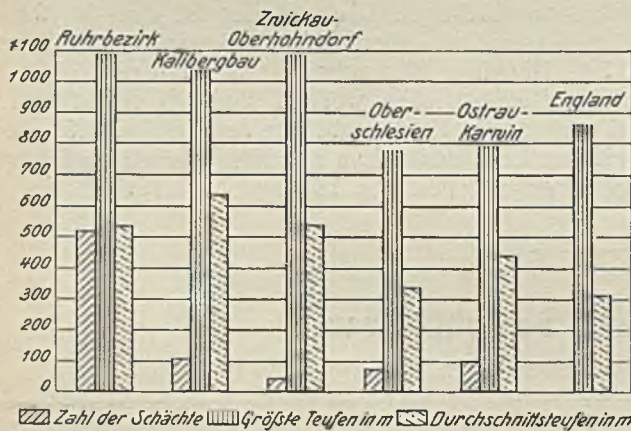 Zwickau-
Ruhrbezirk
Oberhohndorf
Kalibergbau
Ober-
schlesien
Ostrau-
Karwin
England
1100
1000
900
800
700
600
500
400
300
200
100
0
Zahl der Schächte Größte Teufen in m Durchschnittsteufen in m